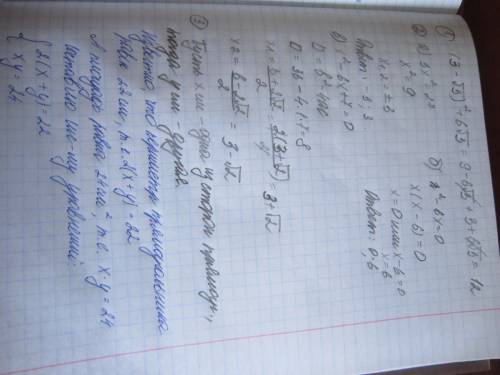 ① (3-√3)² + 6√3 = 9 - 6√3 + 3 + 6√3 = 12
② а) 3x² = 27
x² = 9
x1,2 = ±3
Ответ: -3; 3.
б) x² - 6x = 0
x(x-6) = 0
x=0 или x-6=0
x=6
Ответ: 0; 6
в) x² - 6x + 7 = 0
D = b² - 4ac
D = 36 - 4·1·7 = 8
x1 = 6+2√2 / 2 = 2(3+√2) / 2 = 3+√2
x2 = 6-2√2 / 2 = 3-√2
③ Пусть x см - одна из сторон прямоуг.,
тогда y см - другая.
Известно, что периметр прямоугольника
равен 22 см, т.е. 2(x+y) = 22
А площадь равна 24 см², т.е. x·y = 24
уравнений:
{ 2(x+y) = 22
xy = 24